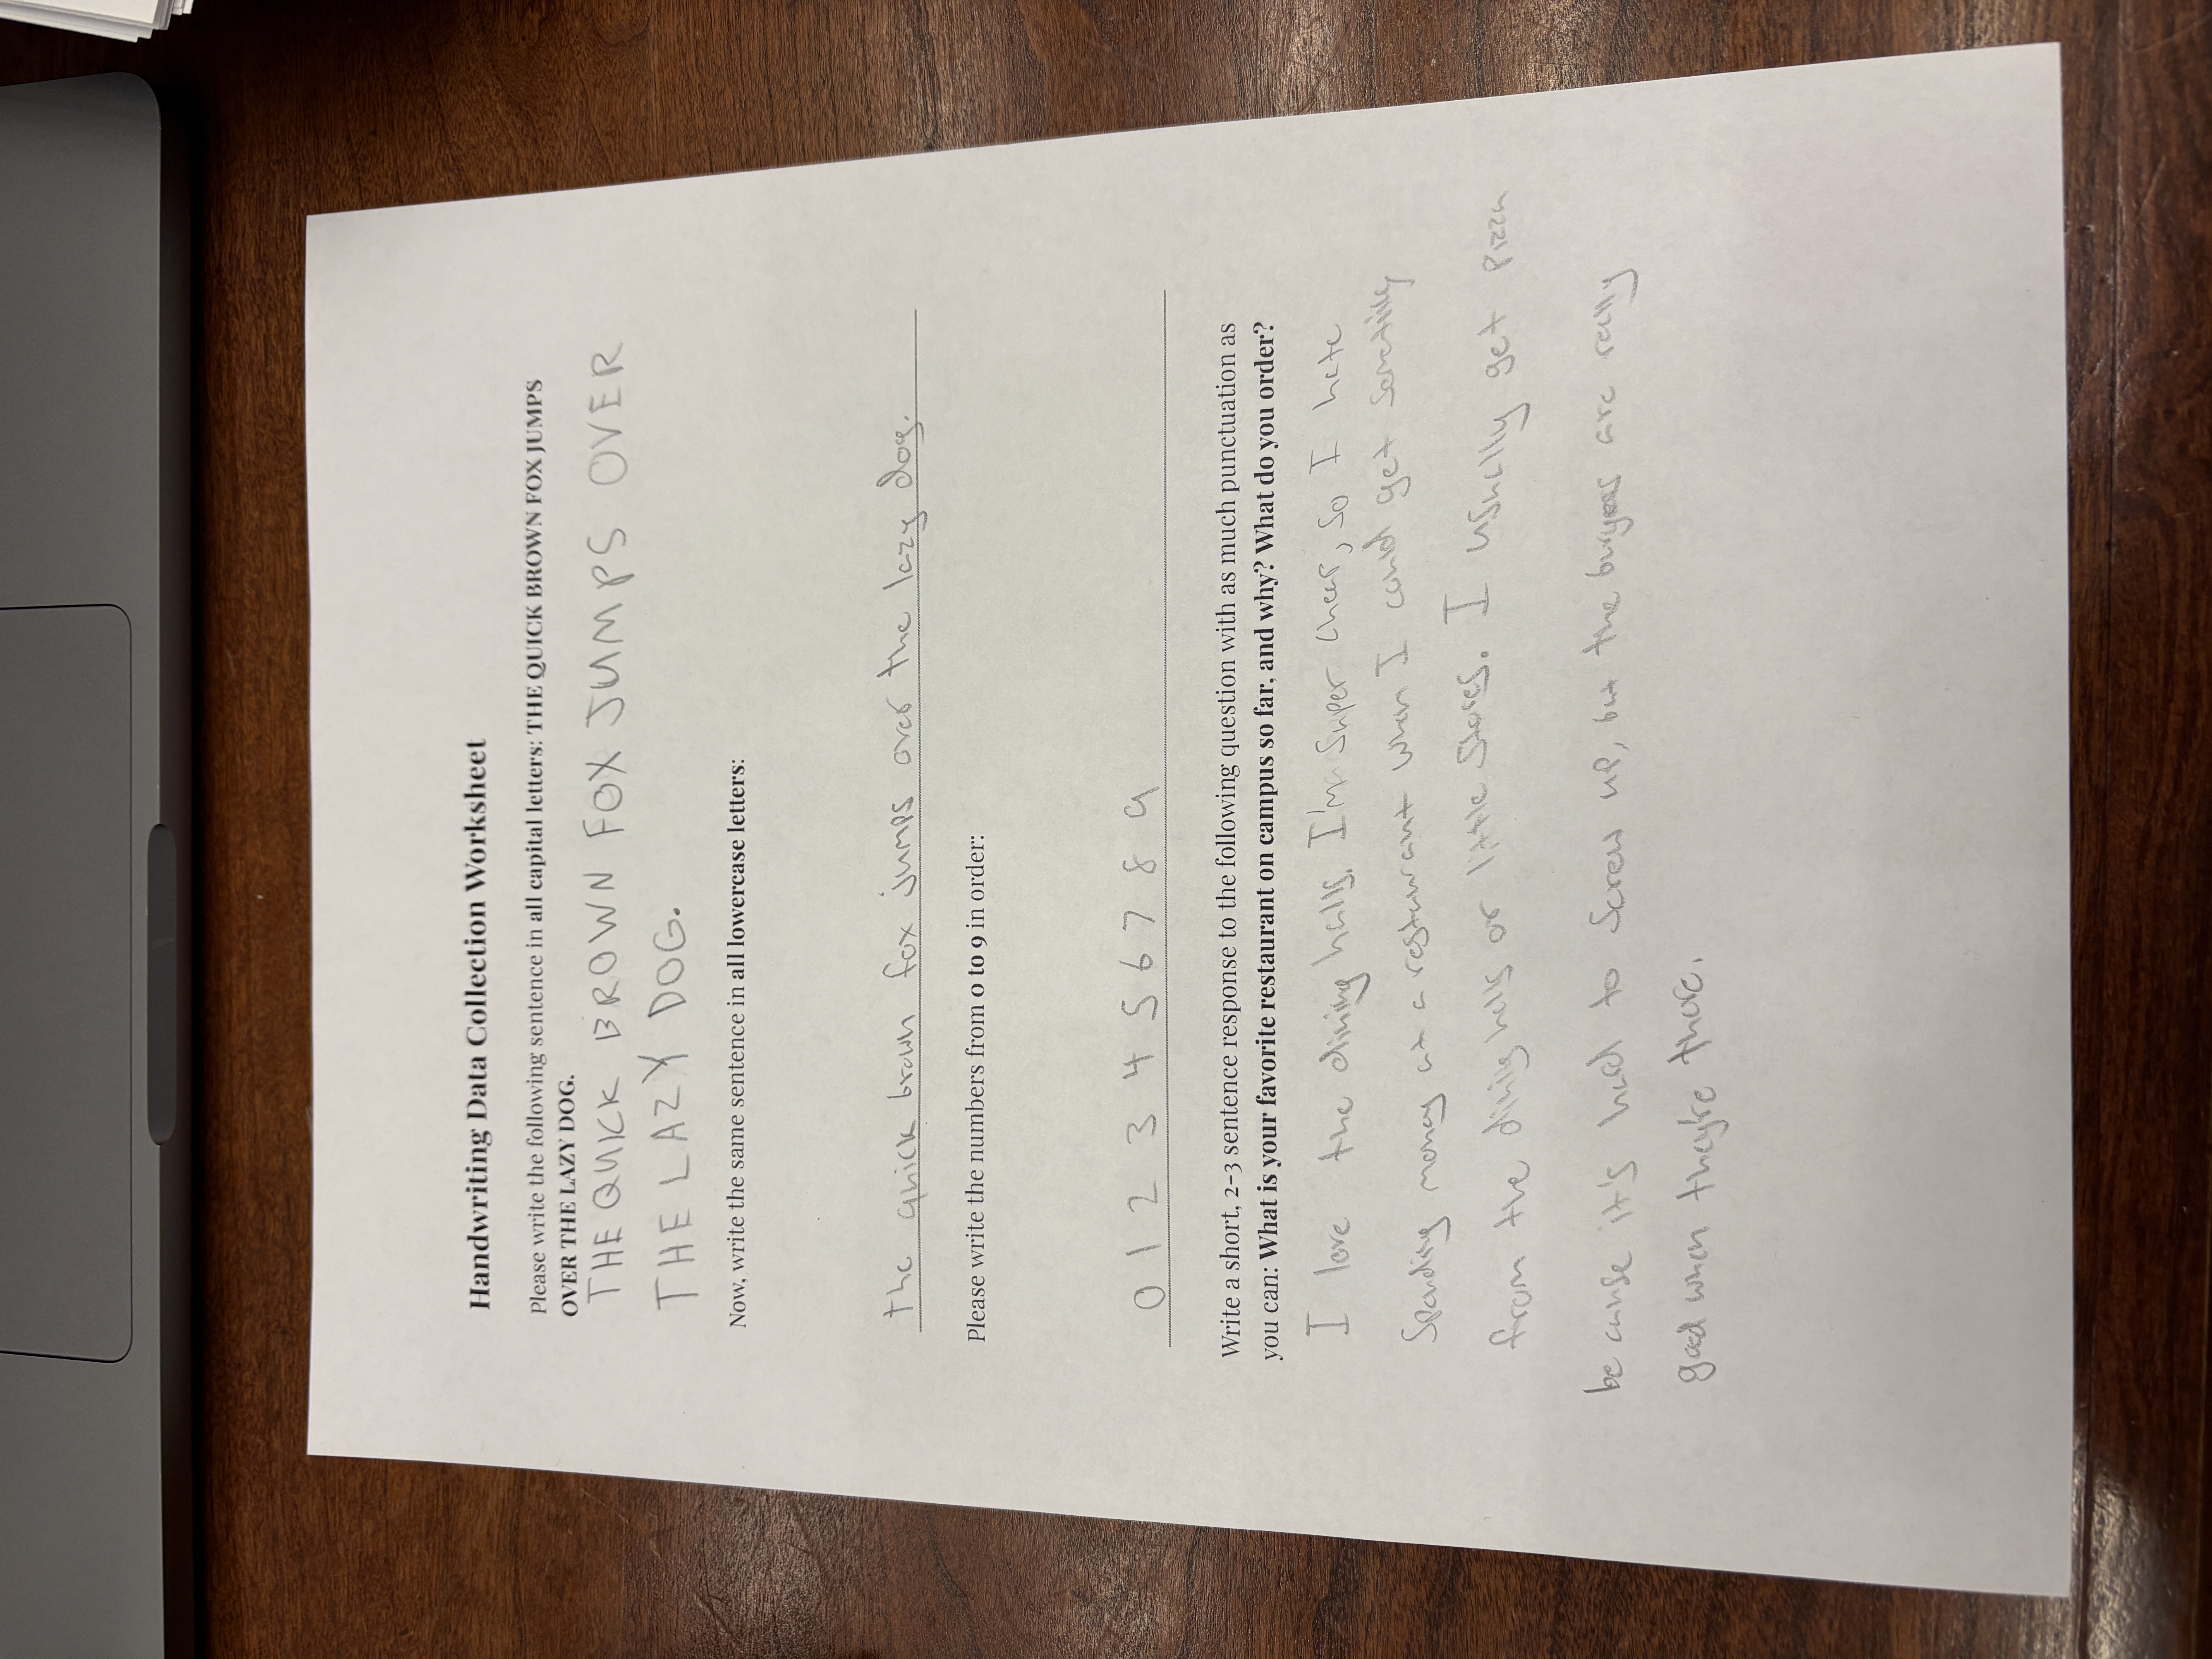 Handwriting Data Collection Worksheet
Please write the following sentence in all capital letters: THE QUICK BROWN FOX JUMPS
OVER THE LAZY DOG.
THE QUICK BROWN FOX JUMPS OVER
THE LAZY DOG.
Now, write the same sentence in all lowercase letters:
the quick brown fox jumps over the lazy dog.
Please write the numbers from 0 to 9 in order:
0 1 2 3 4 5 6 7 8 9
Write a short, 2-3 sentence response to the following question with as much punctuation as
you can: What is your favorite restaurant on campus so far, and why? What do you order?
I love the dining halls. I'm super cheap, so I hate
spending money at a restaurant when I could get something
from the dining halls or little stores. I usually get pizza
because it's hard to screw up, but the burgers are really
good when they're there.